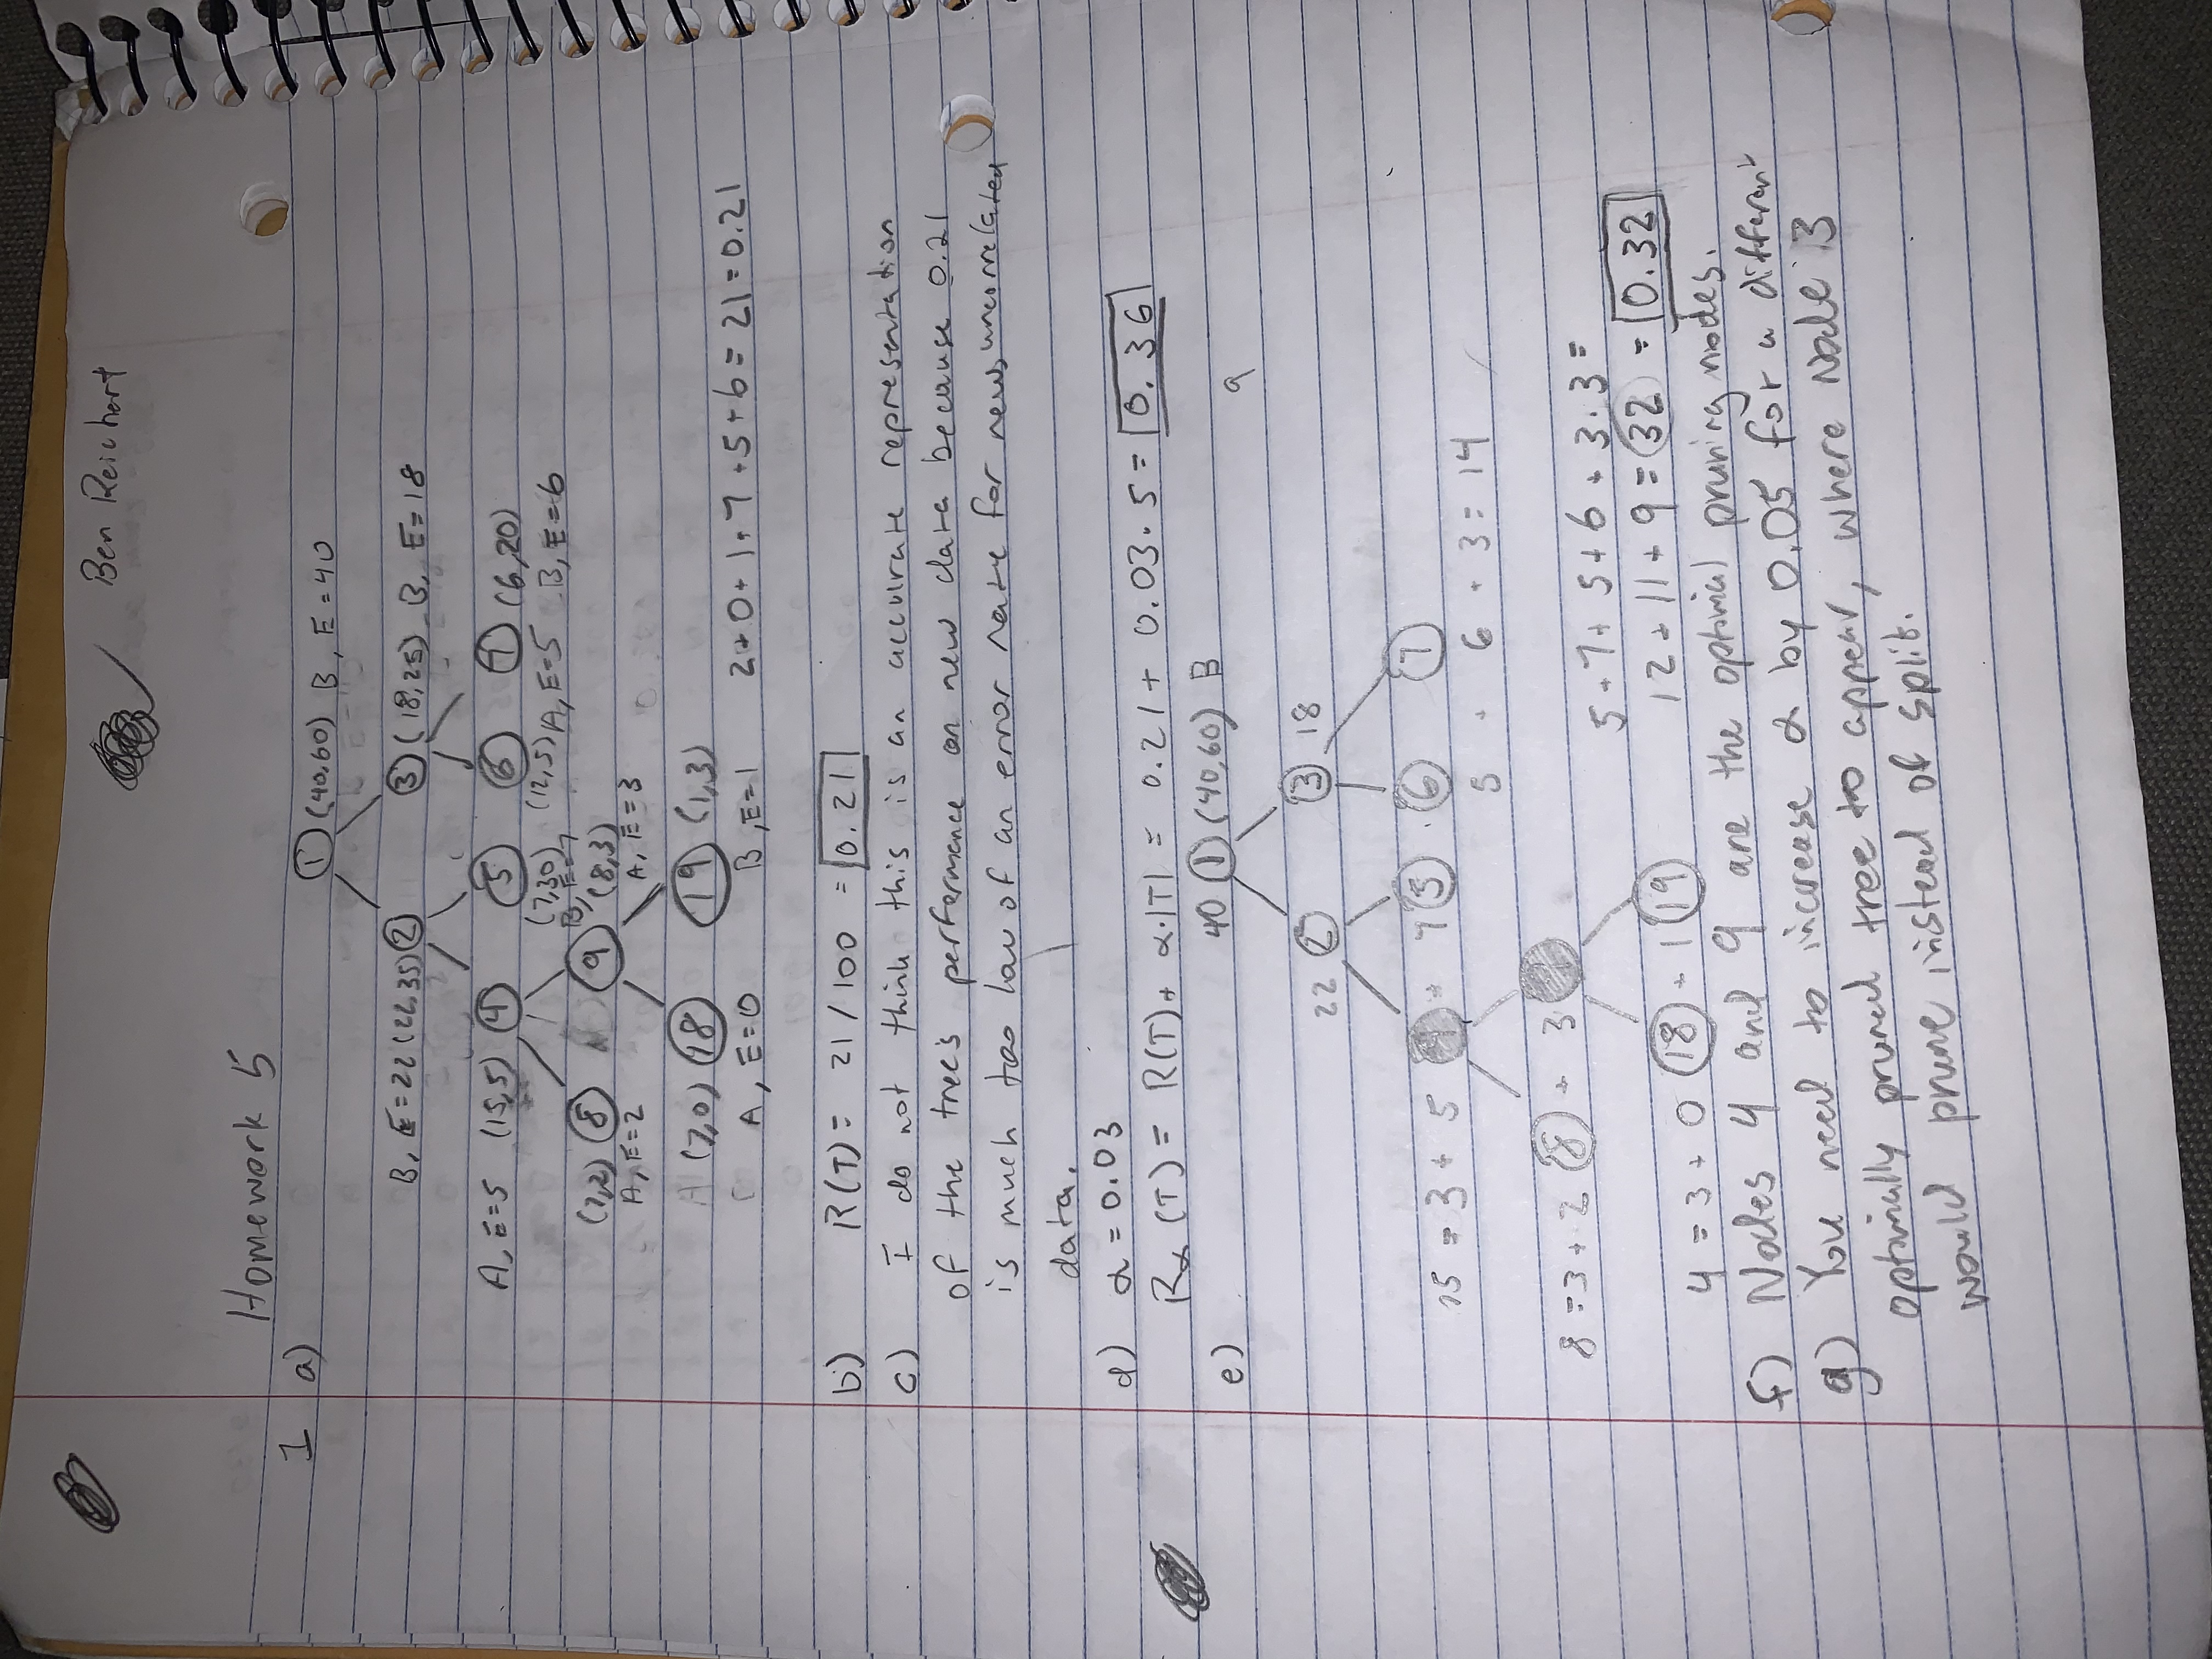 Ben Reichert
Homework 5
1 a)
1 (40,60) B, E=40
B, E=22 (22,35) 2 3 (18,25) B, E=18
A, E=5 (15,5) 4 5 6 7 (6,20)
(7,30) (12,5) A, E=5 B, E=6
B, E=7
(7,2) 8 9 (8,3)
A, E=2 A, E=3
(7,0) 18 19 (1,3)
A, E=0 B, E=1 2+0+1+7+5+6=21=0.21
b) R(T)= 21/100 = 0.21
c) I do not think this is an accurate representation
of the tree's performance on new data because 0.21
is much too low of an error rate for new, uncorrelated
data.
d) α = 0.03
Rα(T) = R(T)+ α·|T| = 0.21+ 0.03·5= 0.36
e) 40 1 (40,60) B
9
22 2 3 18
15 = 3 + 5 4 + 7 5 · 6 7
5 + 6 + 3 = 14
8 = 3 + 2 8 + 3 9
5+7+5+6+3·3=
12+11+9=32 = 0.32
4 = 3 + 0 18 + 1 19
f) Nodes 4 and 9 are the optimal pruning nodes.
g) You need to increase α by 0.05 for a different
optimally pruned tree to appear, where Node 3
would prune instead of split.